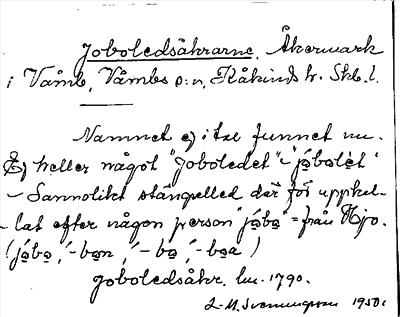 Joboledsåkrarne. Åkermark
i Våmb, Våmbs s:n, Kåkinds h. Skb. l.
Namnet ej i tal funnet nu.
Ej heller något "Joboledet" - jóbolèt
- Sannolikt stängselled där för uppkal-
- lat efter någon person "jóbo" = från Hjo.
(jóbo, -bon, -bo, -boa)
Joboledsåkr. lm. 1790.
L-M. Svenungsson 1950.